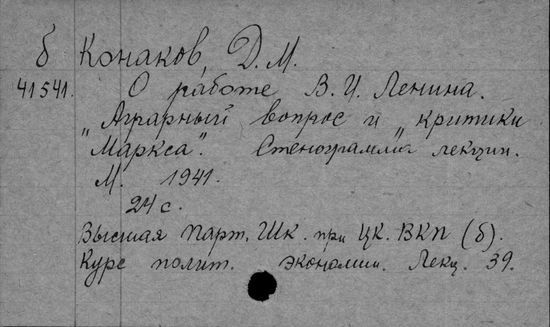 б Конаков, Д. М.
41541. О работе В. И. Ленина.
„Аграрный вопрос и „критики
Маркса". Стенограмма лекции.
М. 1941.
24 с.
Высшая Парт. Шк. при ЦК. ВКП (б).
Курс полит. экономии. Лекц. 39.